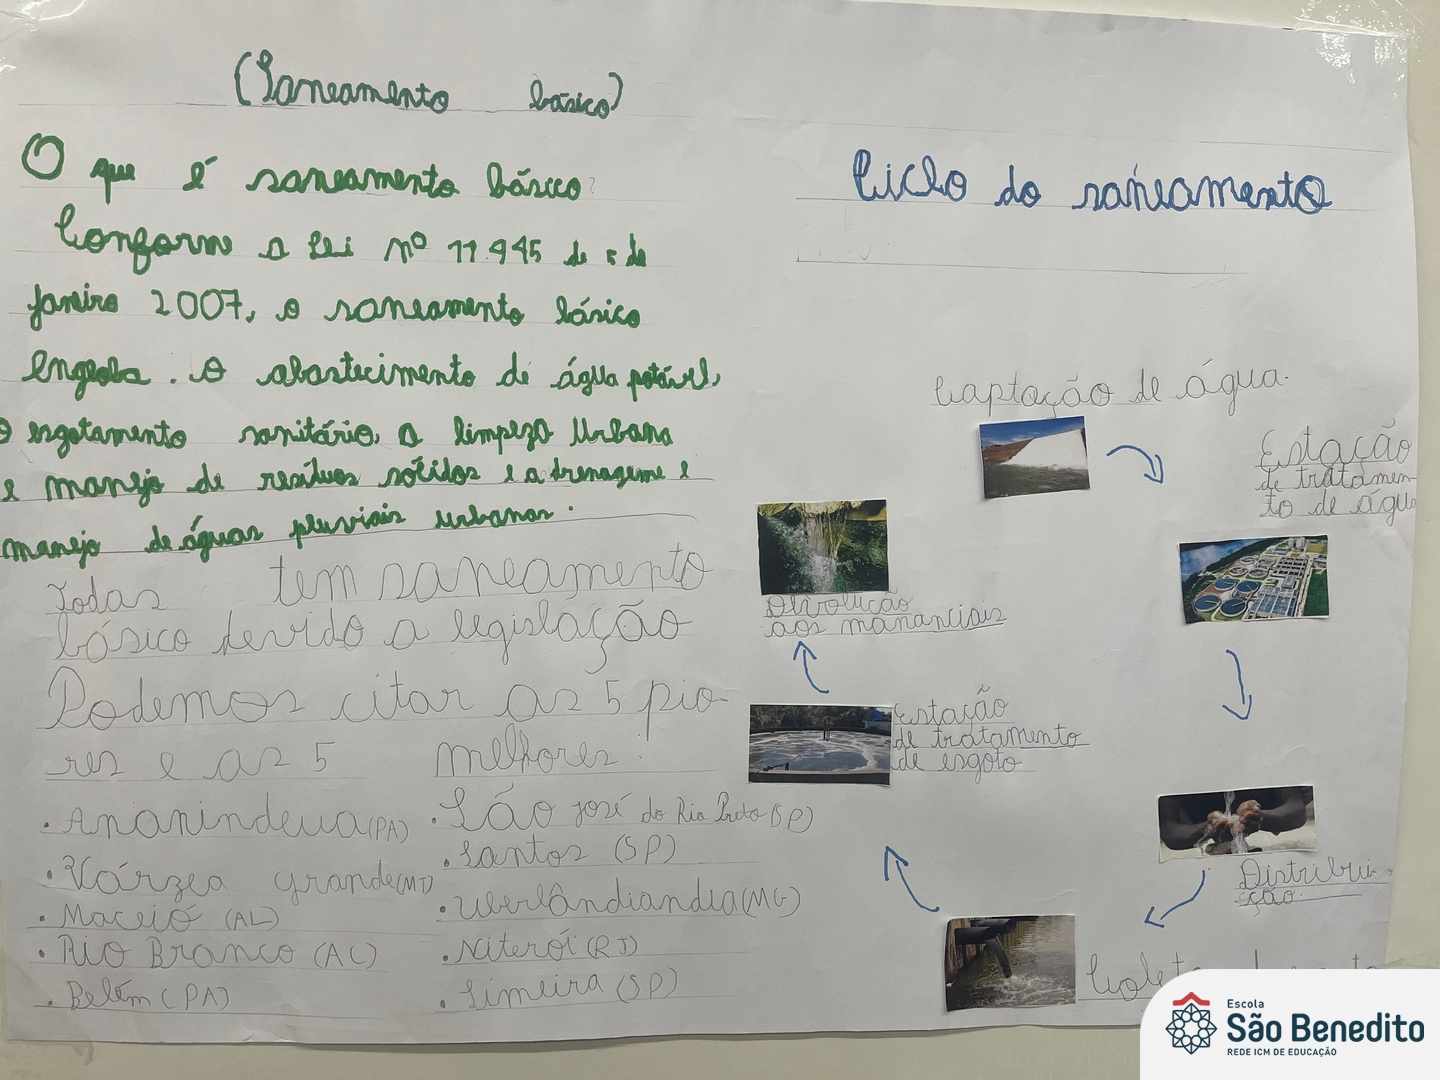 (Saneamento básico)
O que é saneamento básico?
Conforme a Lei nº 11.445 de 5 de
janeiro 2007, o saneamento básico
engloba. O abastecimento de água potável,
o esgotamento sanitário, a limpeza Urbana
e manejo de resíduos sólidos e a drenageme e
manejo de águas pluviais urbanas.
Todas tem saneamento
básico devido a legislação
Podemos citar as 5 pio-
res e as 5 melhores:
• Ananindeua (PA)
• Várzea grande (MT)
• Maceió (AL)
• Rio Branco (AC)
• Belém (PA)
• São José do Rio Preto (SP)
• Santos (SP)
• Uberlândiandia (MG)
• Niterói (RJ)
• Limeira (SP)
Ciclo do saneamento
Captação de água.
Estação
de tratamen-
to de água
Distribui-
ção.
Coleta
Estação
de tratamento
de esgoto
Devolução
aos mananciais
Escola
São Benedito
REDE ICM DE EDUCAÇÃO